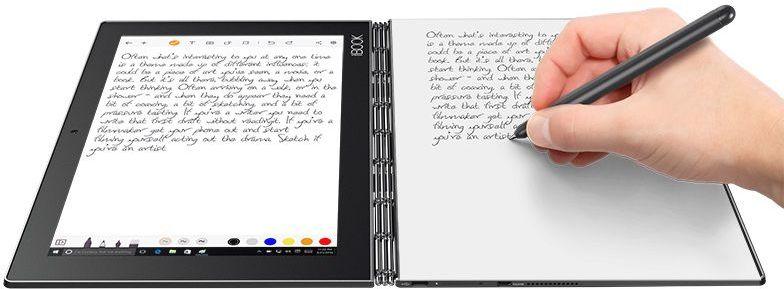 Often what's interesting to you at any one time
is a theme made up of different influences: it
could be a piece of art you've seen, a movie, or a
book. But it's all there, bubbling away when you
start thinking. Often arriving on a walk, or in the
shower - and when they do appear they need a
bit of coaxing, a bit of sketching, and a bit of
pressure testing. If you're a writer you need to
write that first draft without reading it. If you're a
filmmaker get your phone out and start
filming yourself acting out the drama. Sketch if
you're an artist
BOOK
Often what's interesting to you at any one
is a theme made up of different
could be a piece of art you
book. But it's all there,
start thinking. Often
shower - and when they do
bit of coaxing, a bit of
pressure testing. If
write that first draft
filmmaker get your phone
filming yourself
you're an artist